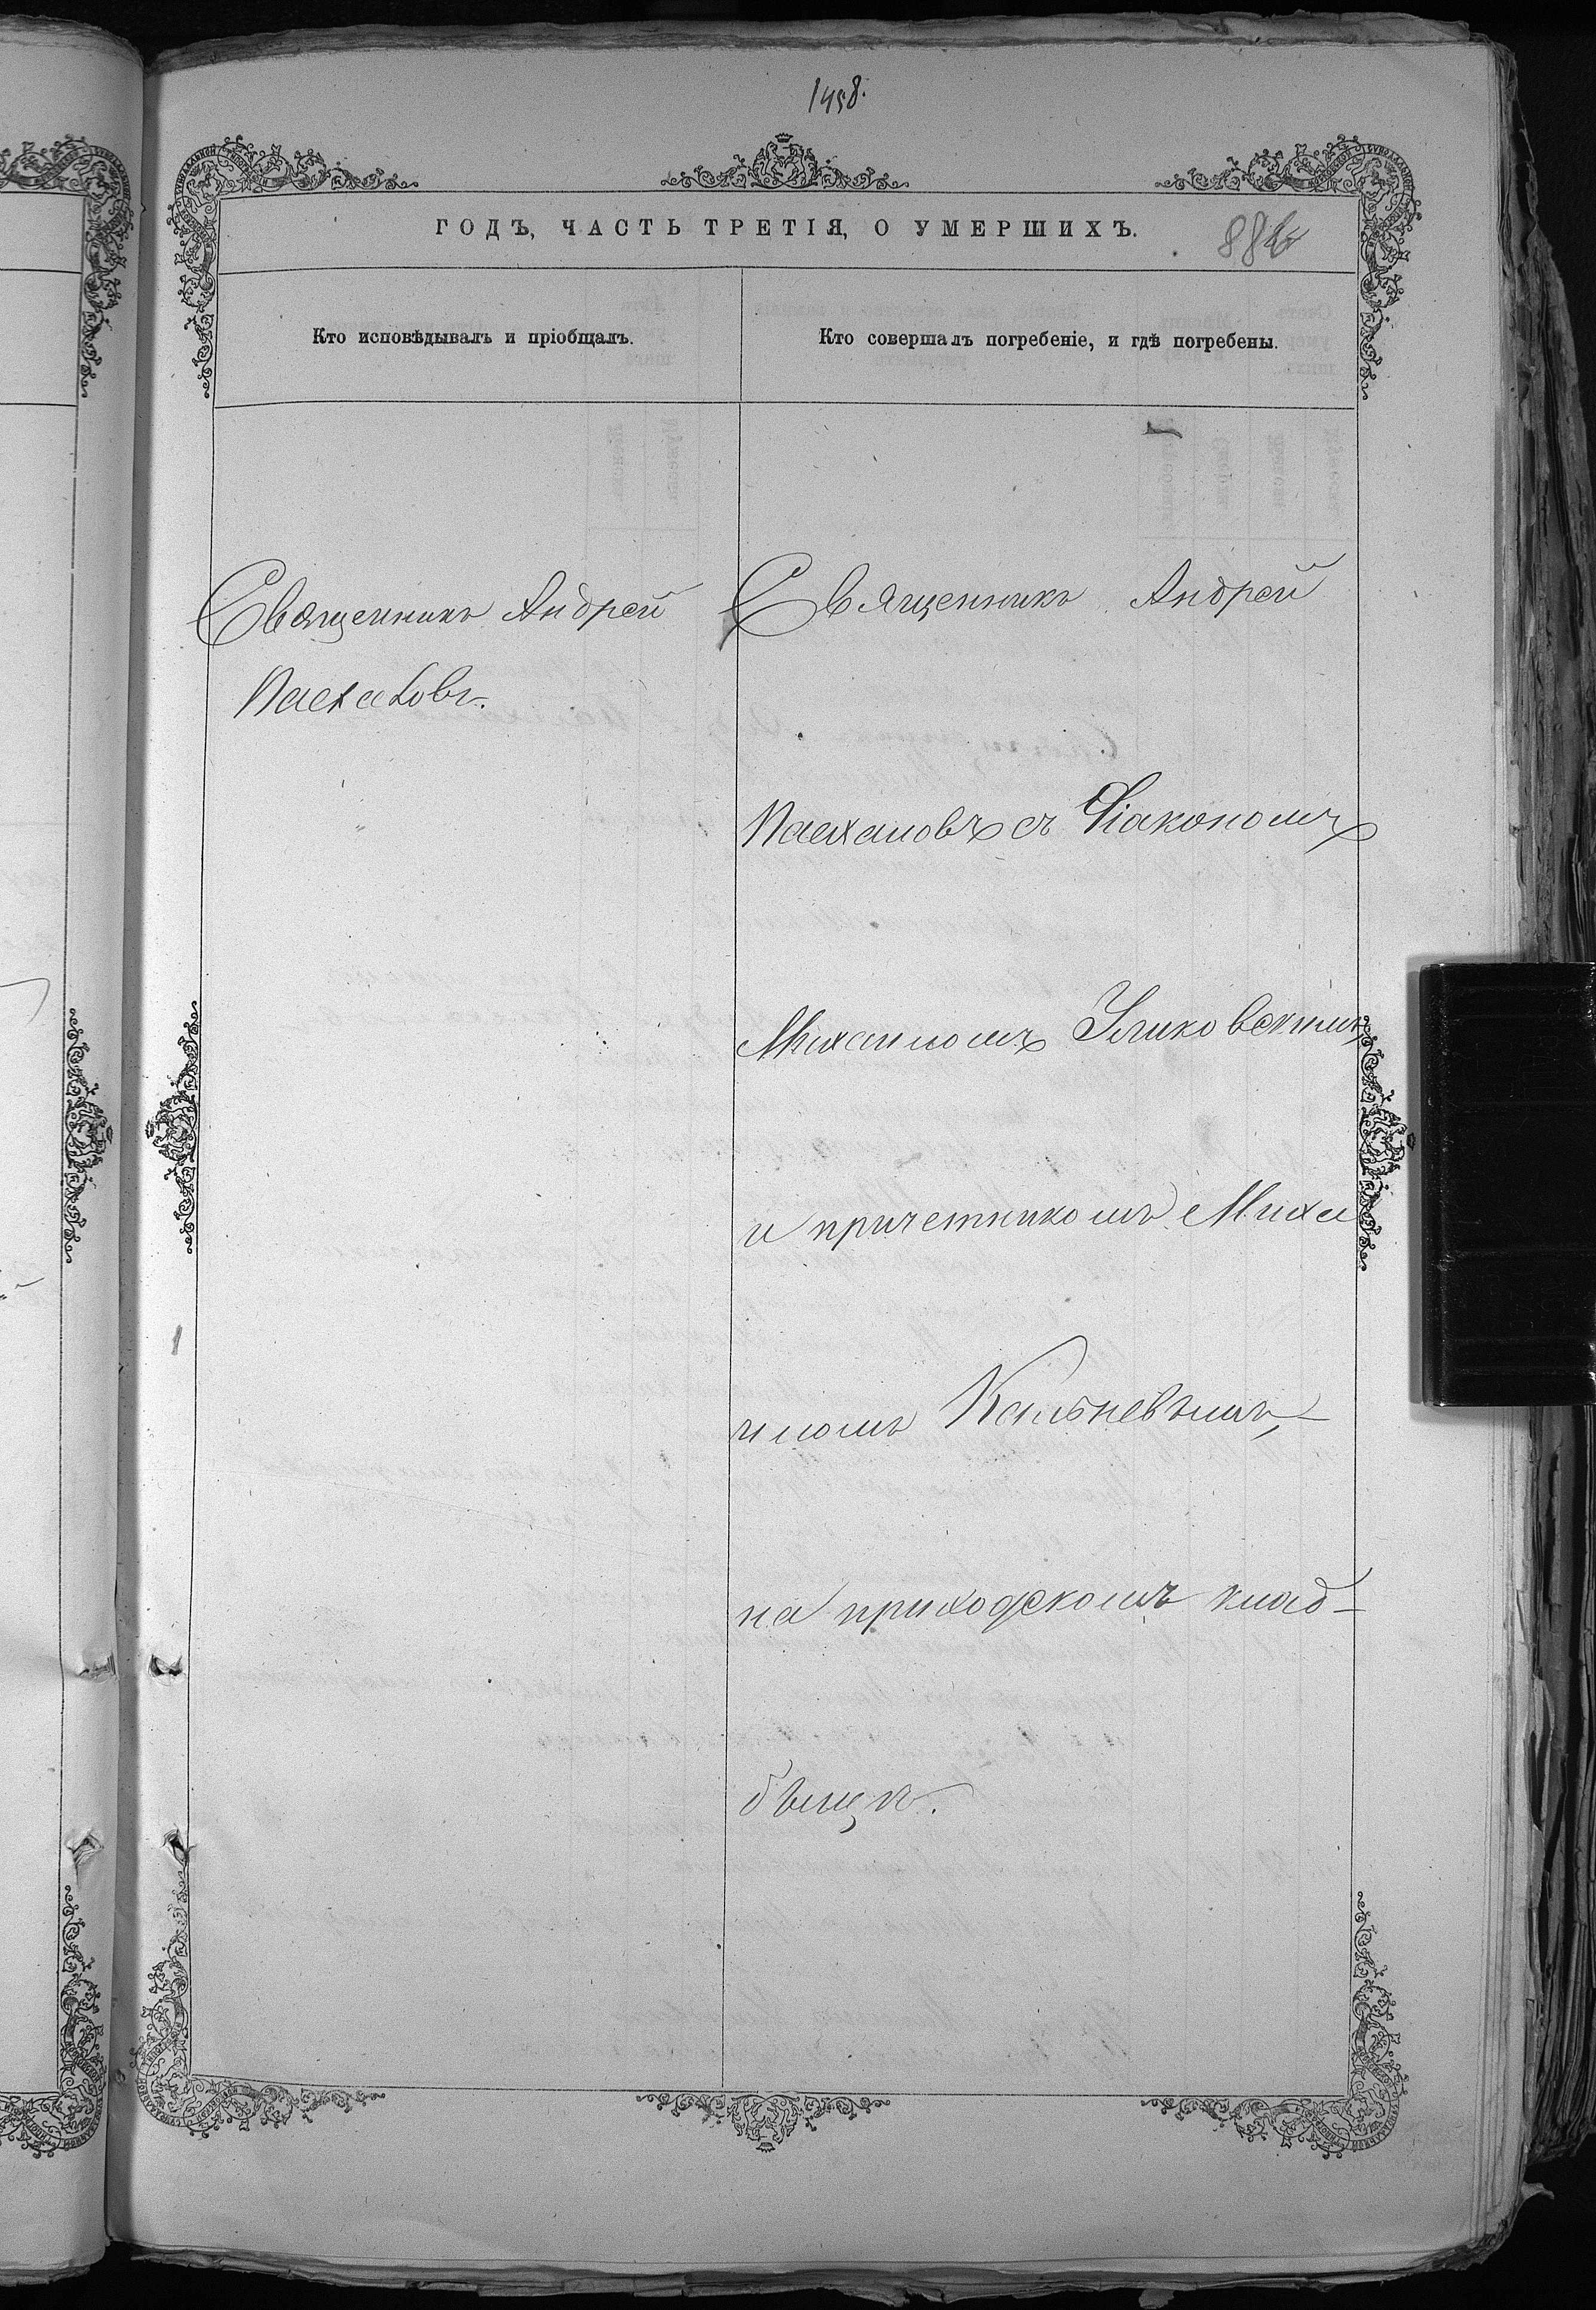 1458.
ГОДЪ, ЧАСТЬ ТРЕТІЯ, О УМЕРШИХЪ.
Кто исповѣдывалъ и пріобщалъ.
Кто совершалъ погребеніе, и гдѣ погребены.
Священникъ Андрей
Пасхаловъ.
Священникъ Андрей
Пасхаловъ съ Діакономъ
Михаиломъ
и причетникомъ Миха
иломъ
на приходскомъ клад-
бищѣ.